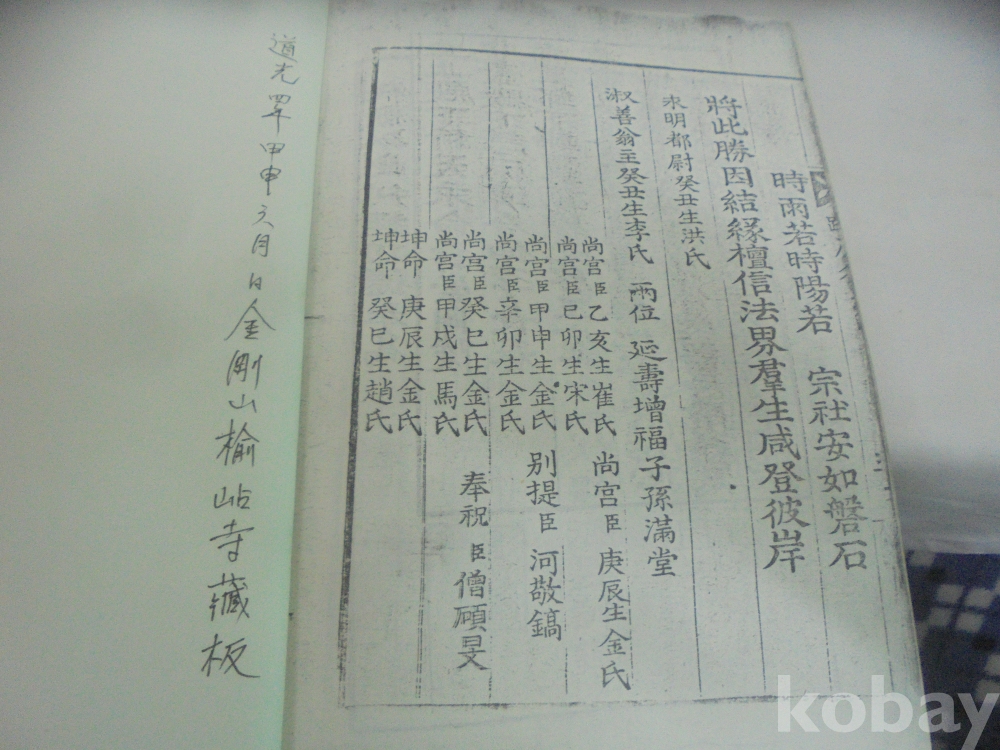 時雨若時陽若 宗社安如磐石
將此勝因結緣檀信法界羣生咸登彼岸
永明都尉癸丑生洪氏
淑善翁主癸丑生李氏 兩位 延壽增福子孫滿堂
尚宮臣乙亥生崔氏 尚宮臣庚辰生金氏
尚宮臣己卯生宋氏
尚宮臣甲申生金氏 別提臣河敬鎬
尚宮臣辛卯生金氏
尚宮臣癸巳生金氏 奉祝臣僧碩旻
尚宮臣甲戌生馬氏
坤命庚辰生金氏
坤命癸巳生趙氏
道光四年甲申六月日金剛山榆岾寺藏板
kobay